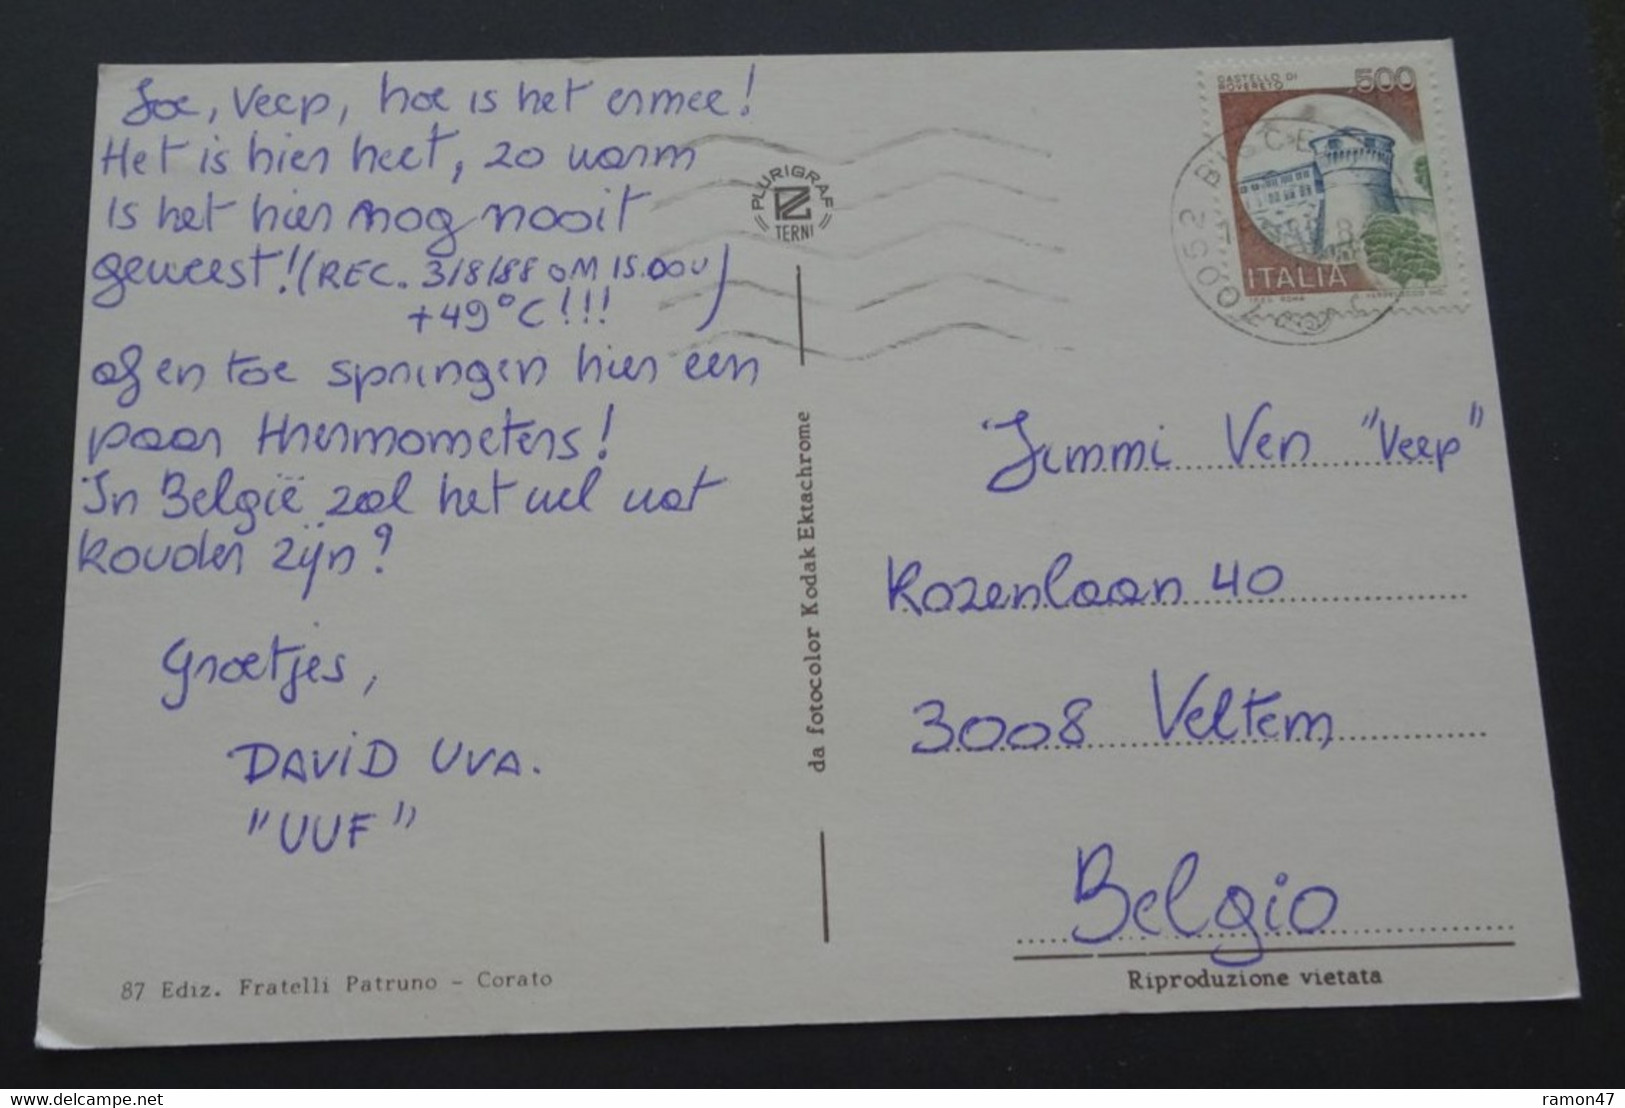 Joe, Veep, hoe is het ermee!
Het is hier heet, zo warm
is het hier nog nooit
geweest! (REC. 3/8/88 OM 15.00U
+49°C!!!)
af en toe springen hier een
paar thermometers!
In België zal het wel wat
kouder zijn?
Groetjes,
DAVID UVA.
"UUF"
87 Ediz. Fratelli Patruno - Corato
PLURIGRAF
TERNI
da fotocolor Kodak Ektachrome
CASTELLO DI
ROVERETO
500
ITALIA
70052 BISCE
Jimmi Ven "Veep"
Rozenlaan 40
3008 Veltem
Belgio
Riproduzione vietata
ramon47